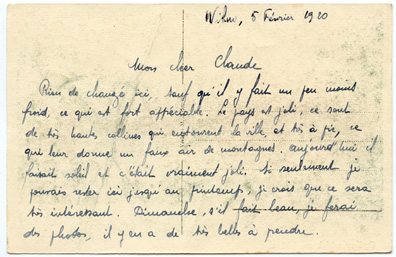 Wilno, 5 Février 1920
Mon cher Claude
Rien de changé ici, sauf qu'il y fait un peu moins
froid, ce qui est fort appréciable. Le pays est joli, ce sont
de très hautes collines qui entourent la ville, et très à pic, ce
qui leur donne un faux air de montagnes. aujourd'hui il
faisait soleil et c'était vraiment joli. Si seulement je
pouvais rester ici jusqu'au printemps, je crois que ce sera
très intéressant. Dimanche, s'il fait beau, je ferai
des photos, il y en a de très belles à prendre.